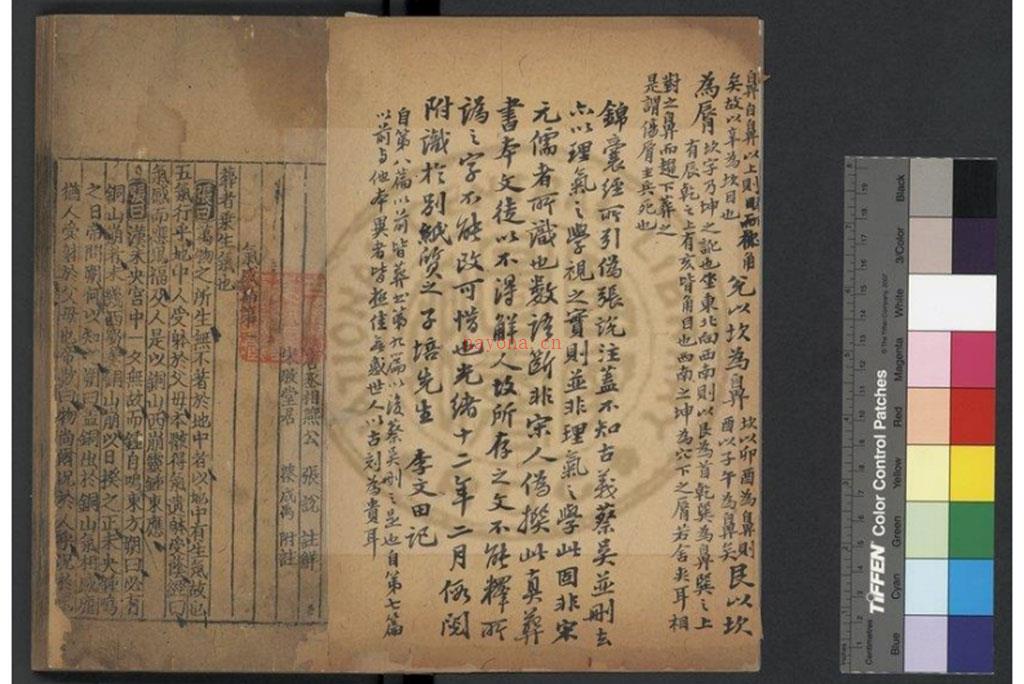 鼻自鼻以上則目而穐角兊以坎為鼻坎以卯酉為鼻則
矣故以辛為坎目也酉以子午為鼻矣艮以坎
為脣坎字乃坤之訛也坐東北向西南則以艮為首乾巽為鼻巽之上
有辰乾之上有亥皆角目也西南之坤為穴下之脣若舍夫耳相
對之鼻而趨下葬之
是謂傷脣主兵死也
錦囊經所引偽張說注蓋不知古義蔡吳並刪去
亦以理氣之學視之實則並非理氣之學此固非宋
元儒者所識也數語斷非宋人偽撰此真葬
書本文徒以不得解人故所存之文不能釋所
譌之字不能改可惜也光緒十二年二月
附識於別紙質之子培先生 李文田記
自第八篇以前皆葬書第九篇以後蔡吳刪之是也自第七篇
以前与他本異者皆極佳無惑世人以古刻為貴耳
丞相燕公 張說 註解
陳成禹 附註
氣感篇第一
葬者乗生氣也
張曰萬物之所生無不著於地中者以地中有生氣故也
五氣行乎地中人受躰於父母本骸得氣遺躰受蔭經曰
氣感而應鬼福及人是以銅山西崩靈鍾東應
張曰漢未央宮中一夕無故而鍾自鳴東方朔曰必有
銅山崩者未幾西蜀奏銅山崩以日揆之正未央鍾鳴
之日帝問朔何以知之朔曰蓋銅出於銅山氣相感應
猶人受躰於父母也帝歎曰物尚爾況於人乎況於
nayona.cn
TIFFEN Color Control Patches
© The Tiffen Company, 2007
Centimetres
Inches
Blue
Cyan
Green
Yellow
Red
Magenta
White
3/Color
Black